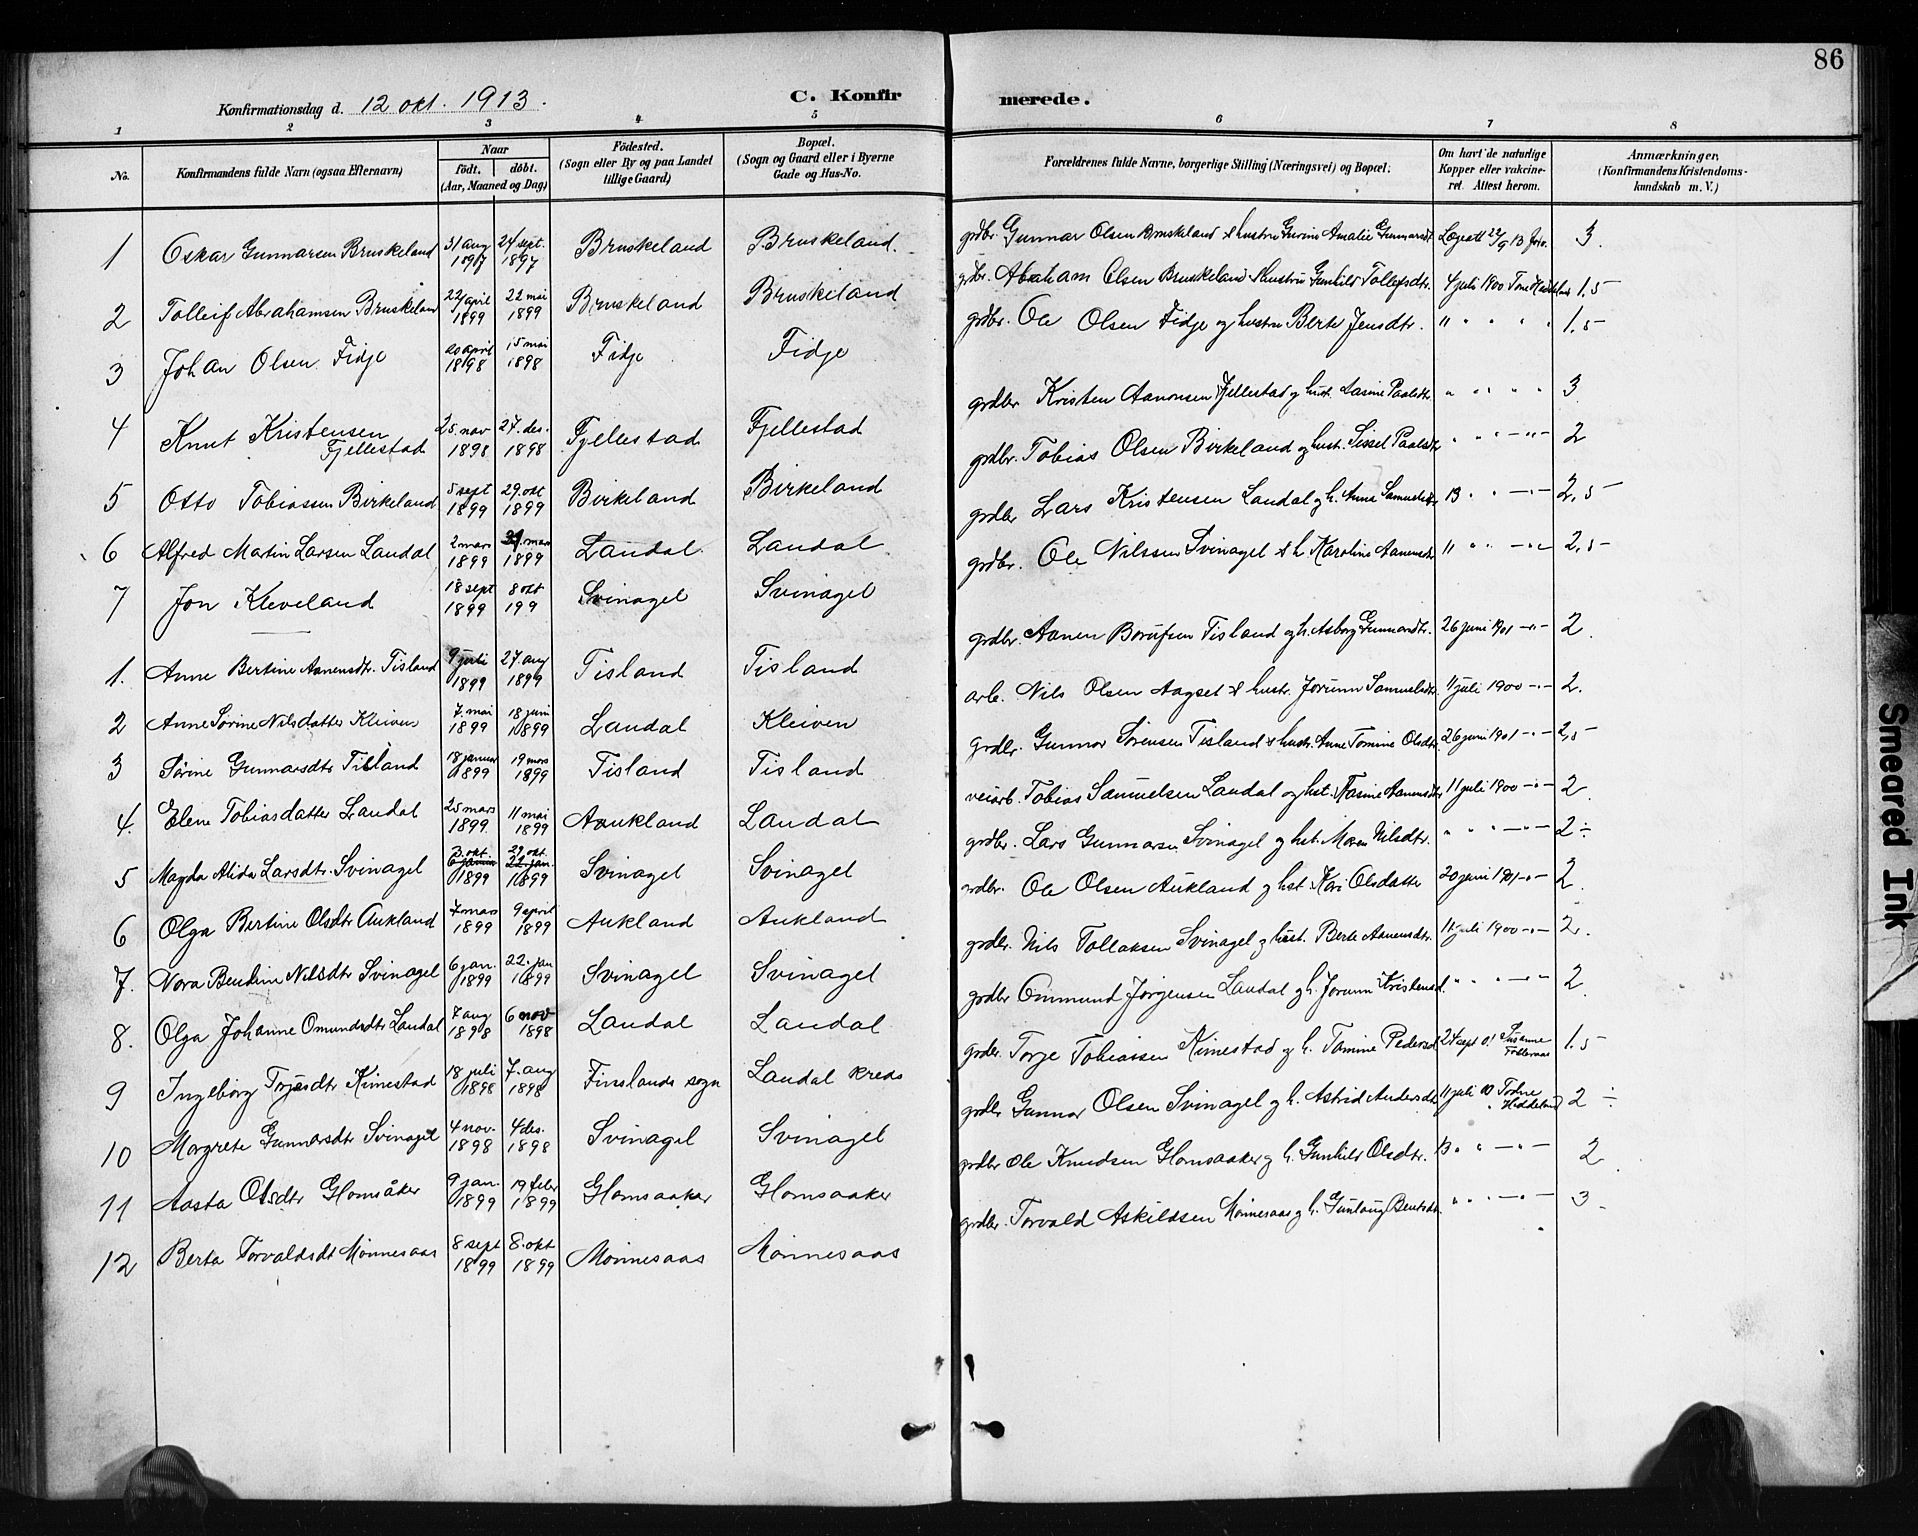 86
Konfirmationsdag d. 12 okt. 1913.
C. Konfirmerede.
1 2 3 4 5 6 7 8
No.
Konfirmandens fulde Navn (ogsaa Efternavn)
Naar
födt. döbt.
(Aar, Maaned og Dag)
Födested.
(Sogn eller By og paa Landet
tillige Gaard)
Bopæl.
(Sogn og Gaard eller i Byerne
Gade og Hus-No.
Forældrenes fulde Navne, borgerlige Stilling (Næringsvei) og Bopæl.
Om havt de naturlige
Kopper eller vakcine-
ret. Attest herom.
Anmærkninger.
(Konfirmandens Kristendoms-
kundskab m. V.)
1 Oskar Gunnarsen Bruskeland 31 aug 1897 24 sept. 1897 Bruskeland Bruskeland. grdbr. Gunnar Olsen Bruskeland & hustru Amalie Gunnarsdt. 3.
2 Tolleif Abrahamsen Bruskeland 22 april 1899 22 mai 1899 Bruskeland Bruskeland grdbr. Abraham Olsen Bruskeland & hustru Gunhild Tollefsdtr. 4 juli 1900 1,5
3 Johan Olsen Fidje 20 april 1898 15 mai 1898 Fidje Fidje grdbr. Ole Olsen Fidje og hustru Berte Jensdtr. " " " " 1,5
4 Knut Kristensen Fjellestad 25. nov 1898 27. des. 1898 Fjellestad Fjellestad grdbr Kristen Aanonsen Fjellestad og hust. Aasine Paalsdtr. " " " " 3
5 Otto Tobiassen Birkeland 5 sept 1899 29. okt 1899 Birkeland Birkeland grdbr. Tobias Olsen Birkeland og hust. Sissel Paalsdtr " " " — " — 2
6 Alfred Martin Larsen Landal 2 mars 1899 mars 1899 Landal Landal grdbr Lars Kristensen Landal og h. Anne Samuelsdtr 13 " " — " — 2,5
7 Jon Kleveland 18 sept 1899 8 okt 199 Svinagel Svinagel grdbr. Ole Nilssen Svinagel & h. Karoline Aanensdtr 11 " " — " — 2,5
1. Anne Bertine Aanensdtr. Tisland 9 juli 1899 27. aug 1899 Tisland Tisland grdbr. Aanen Borufsen Tisland og h. Asborg Gunnarsdtr. 26 juni 1901 — " — 2.
2 Anne Sørine Nilsdatter Kleiven 7. mai 1899 18 juni 1899 Landal Kleiven arb. Nils Olsen Aagset & hustr. Jorunn Samuelsdtr 11 juli 1900 — " — 2.
3 Sørine Gunnarsdtr Tisland 18 januar 1899 19 mars 1899 Tisland Tisland grdbr. Gunnar Sørensen Tisland & hustr. Anne Tomine Olsdtr. 26 juni 1901 — " — 2,5
4. Elene Tobiasdatter Landal 25 mars 1899 11 mai 1899 Aukland Landal veiarb. Tobias Samuelsen Landal og hst. Aasine Aanensdtr 11 juli 1900 — " — 2.
5 Magda Alida Larsdtr. Svinagel 3. okt. 6 januar 1899 29. okt. 22. jan. 1899 Svinagel Svinagel grdbr. Lars Gunnarsen Svinagel og hst. Maren Nilsdtr. " " " — " — 2 ÷
6 Olga Bertine Olsdtr Aukland 7 mars 1899 9 april 1899 Aukland Aukland grdbr. Ole Olsen Aukland og hst. Kari Olsdatter 20 juni 1901 — " — 2.
7. Nora Bendine Nilsdtr Svinagel 6 jan. 1899 22. jan 1899 Svinagel Svinagel grdbr. Nils Tollaksen Svinagel og hust. Berte Aanensdtr. 11 juli 1900 — " — 2.
8. Olga Johanne Omundsdtr Landal 7 aug 1898 6 nov 1898 Landal Landal grdbr Ommund Jørgensen Landal og h. Jorunn Kristensd. " " " — " — 2
9 Ingeborg Torjusdtr Kimestad 18 juli 1898 7. aug 1898 Finslands sogn Landal kreds grdbr. Torje Tobiassen Kimestad og h. Tomine Pedersd. 24 sept 01 Susanne 1.5
10 Margrete Gunnarsdtr Svinagel 4 nov. 1898 4 des. 1898 Svinagel Svinagel grdbr Gunnar Olsen Svinagel og h. Astrid Andersdtr 11 juli 00 2 ÷
11 Aasta Olsdtr Glomsåker 9 jan. 1899 19 febr 1899 Glomsaaker Glomsaaker grdbr Ole Knudsen Glomsaaker og h. Gunhild Olsdtr. 13 " " — " — 2
12 Berta Torvaldsdt Mønnesaas 8 sept 1899 8. okt 1899 Mønnesaas Mønnesaas grdbr. Torvald Askildsen Mønnesaas og h. Gunlaug Bentsdtr. " " " — " — 3.
Smeared Ink